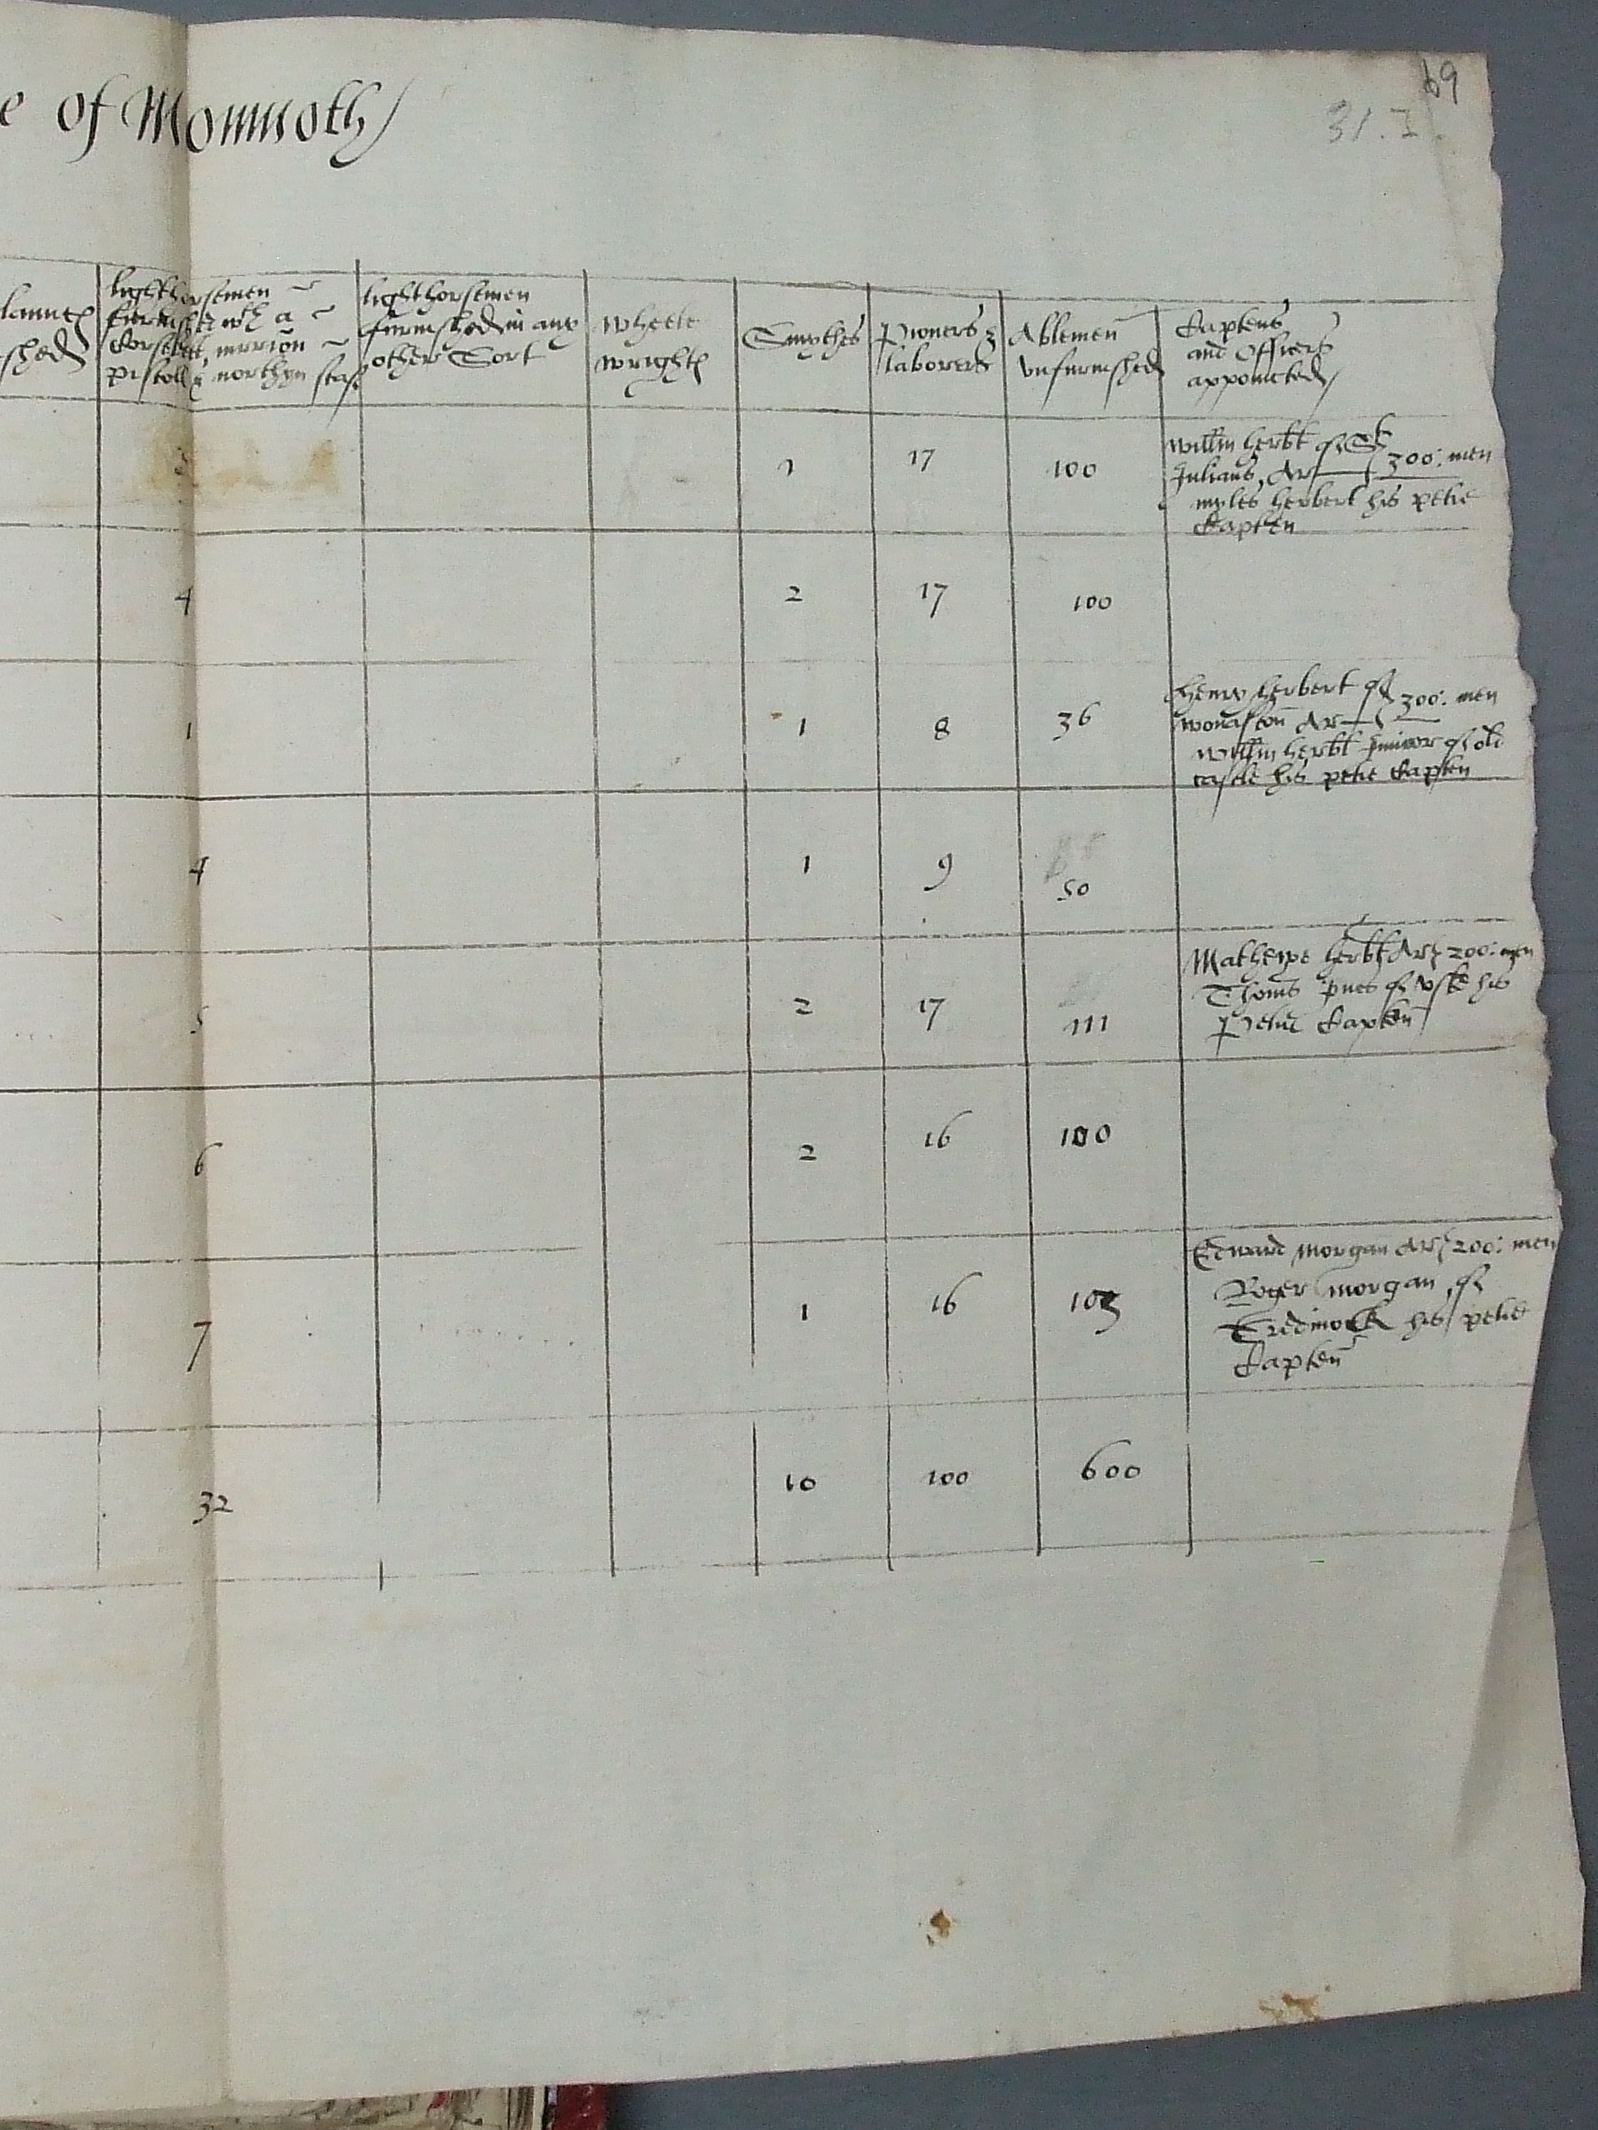 e of Monmoth
69
31. I.
launc
shed
light horsemen
furnished wth a
Corselett, murrion
pistoll & northyn staf
light horsemen
furnished in any
other Sort
wheele
wrightes
Smythes
Pioners &
laborers
Ablemen
unfurnished
Captens
and Officers
appoincted
1 17 100
Willm herbt of St
Julians, Ar 300: men
myles herbert his petie
Capten
4 2 17 100
1 1 8 36
henry herbert of 300: men
wonaston Ar
Willm herbt Junior of old
castle his petie Capten
4 1 9 50
5 2 17 111
Mathewe herbt Ar 200: men
Thoms of Uske his
Petie Capten
6 2 16 100
7 1 16 103
Edward Morgan Ar 200: men
Roger Morgan of
Tredinock his petie
Capten
32 10 100 600